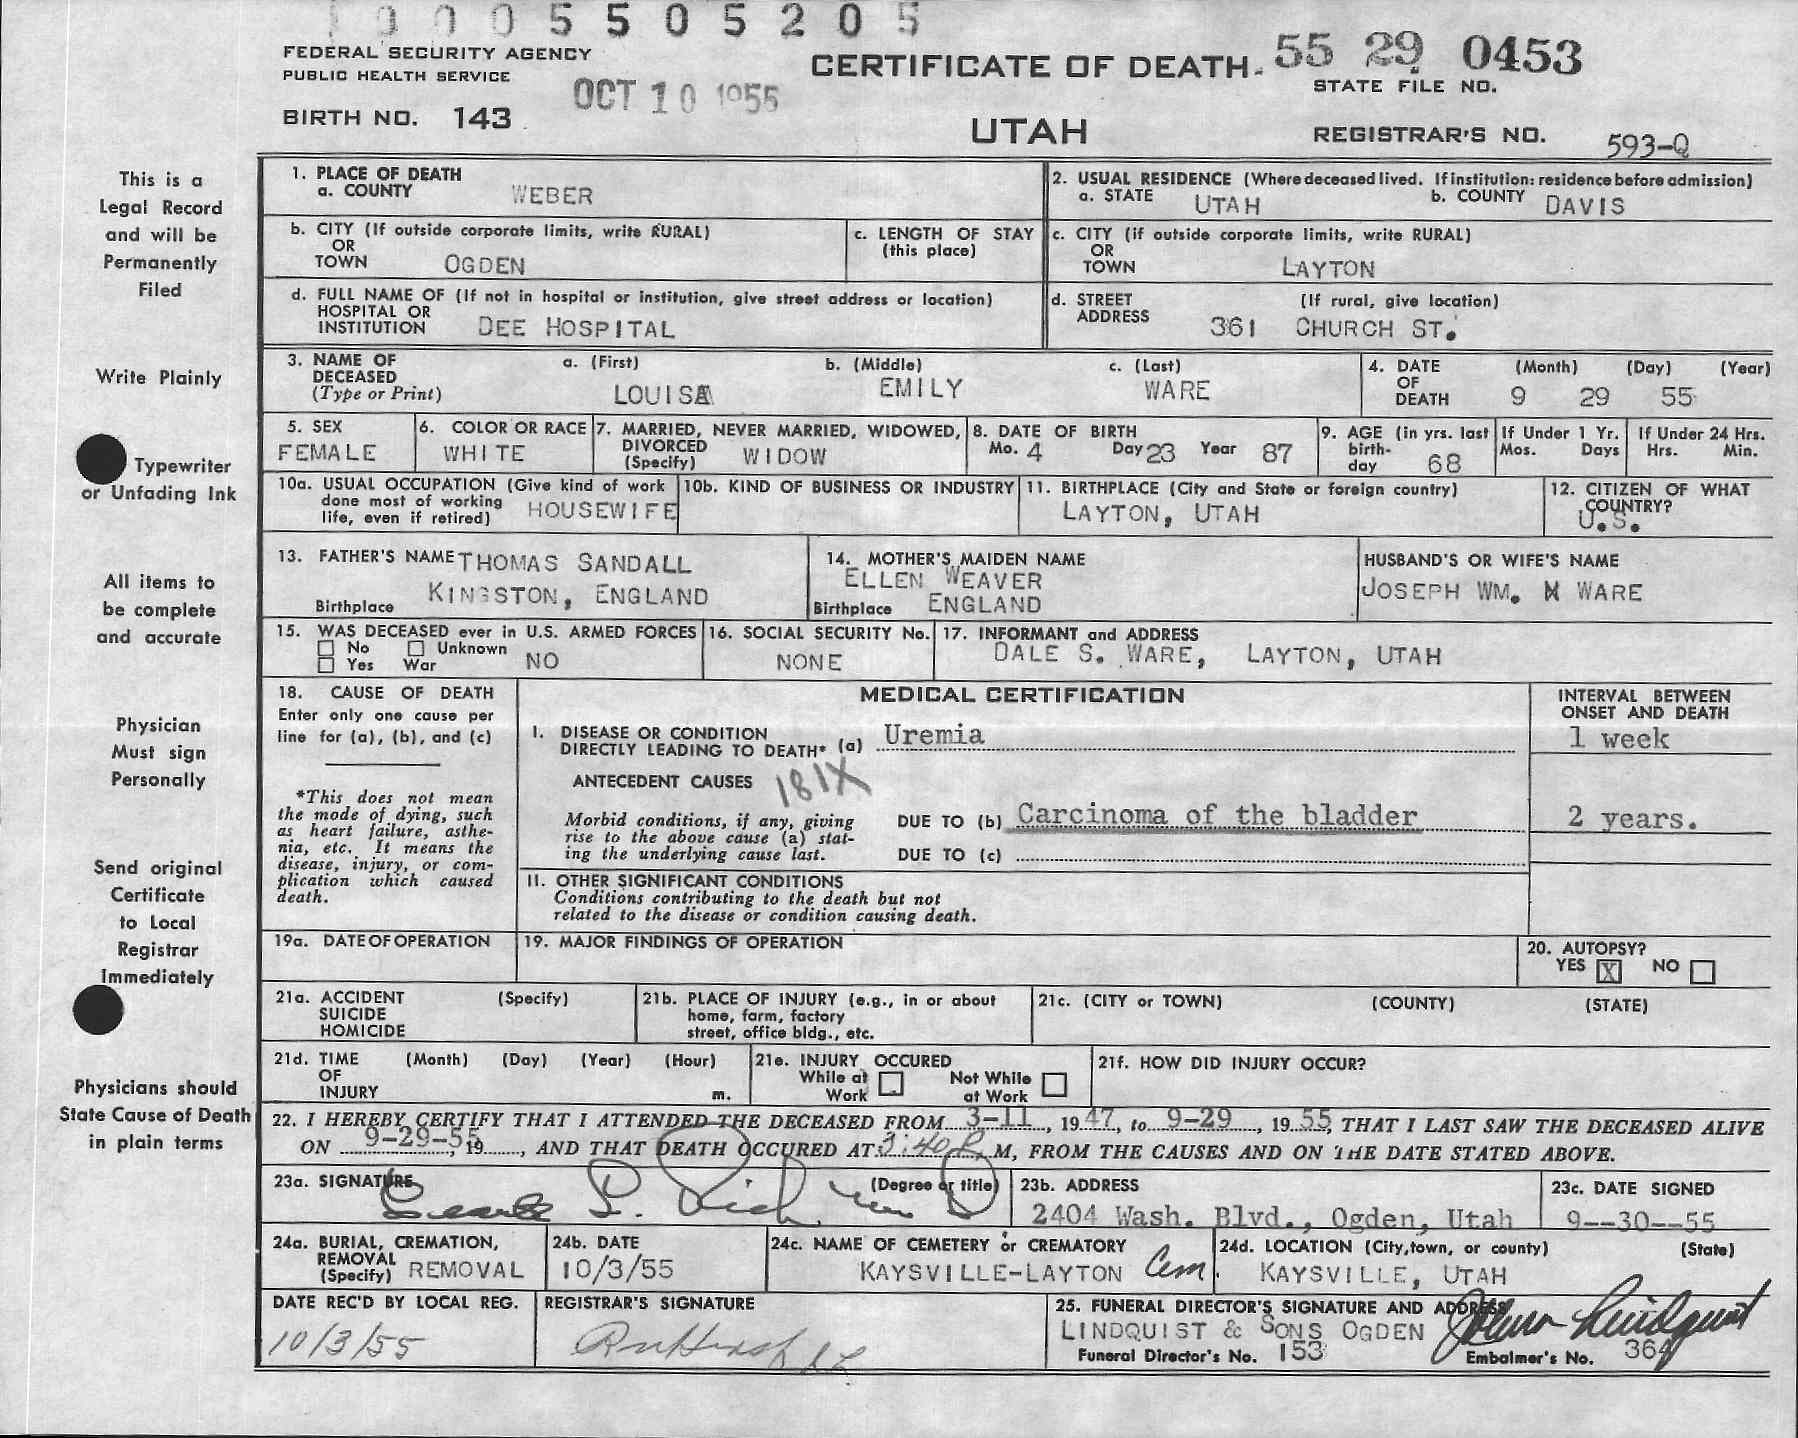 0005505205
FEDERAL SECURITY AGENCY
PUBLIC HEALTH SERVICE
OCT 10 1955
CERTIFICATE OF DEATH
55 29 0453
STATE FILE NO.
BIRTH NO. 143
UTAH
REGISTRAR'S NO. 593-Q
This is a
Legal Record
and will be
Permanently
Filed
Write Plainly
Typewriter
or Unfading Ink
All items to
be complete
and accurate
Physician
Must sign
Personally
Send original
Certificate
to Local
Registrar
Immediately
Physicians should
State Cause of Death
in plain terms
1. PLACE OF DEATH
a. COUNTY WEBER
2. USUAL RESIDENCE (Where deceased lived. If institution: residence before admission)
a. STATE UTAH b. COUNTY DAVIS
b. CITY (If outside corporate limits, write RURAL)
OR
TOWN OGDEN
c. LENGTH OF STAY
(this place)
c. CITY (if outside corporate limits, write RURAL)
OR
TOWN LAYTON
d. FULL NAME OF (If not in hospital or institution, give street address or location)
HOSPITAL OR
INSTITUTION DEE HOSPITAL
d. STREET (If rural, give location)
ADDRESS 361 CHURCH ST.
3. NAME OF a. (First) b. (Middle) c. (Last)
DECEASED
(Type or Print) LOUISA EMILY WARE
4. DATE (Month) (Day) (Year)
OF
DEATH 9 29 55
5. SEX
FEMALE
6. COLOR OR RACE
WHITE
7. MARRIED, NEVER MARRIED, WIDOWED,
DIVORCED
(Specify) WIDOW
8. DATE OF BIRTH
Mo. 4 Day 23 Year 87
9. AGE (in yrs. last
birth-
day 68
If Under 1 Yr.
Mos. Days
If Under 24 Hrs.
Hrs. Min.
10a. USUAL OCCUPATION (Give kind of work
done most of working
life, even if retired) HOUSEWIFE
10b. KIND OF BUSINESS OR INDUSTRY
11. BIRTHPLACE (City and State or foreign country)
LAYTON, UTAH
12. CITIZEN OF WHAT
COUNTRY?
U.S.
13. FATHER'S NAME THOMAS SANDALL
Birthplace KINGSTON, ENGLAND
14. MOTHER'S MAIDEN NAME
ELLEN WEAVER
Birthplace ENGLAND
HUSBAND'S OR WIFE'S NAME
JOSEPH WM. WARE
15. WAS DECEASED ever in U.S. ARMED FORCES
No Unknown
Yes War NO
16. SOCIAL SECURITY No.
NONE
17. INFORMANT and ADDRESS
DALE S. WARE, LAYTON, UTAH
18. CAUSE OF DEATH
Enter only one cause per
line for (a), (b), and (c)
*This does not mean
the mode of dying, such
as heart failure, asthe-
nia, etc. It means the
disease, injury, or com-
plication which caused
death.
MEDICAL CERTIFICATION
INTERVAL BETWEEN
ONSET AND DEATH
I. DISEASE OR CONDITION
DIRECTLY LEADING TO DEATH* (a) Uremia 1 week
ANTECEDENT CAUSES 181X
Morbid conditions, if any, giving
rise to the above cause (a) stat-
ing the underlying cause last.
DUE TO (b) Carcinoma of the bladder 2 years.
DUE TO (c)
II. OTHER SIGNIFICANT CONDITIONS
Conditions contributing to the death but not
related to the disease or condition causing death.
19a. DATE OF OPERATION
19. MAJOR FINDINGS OF OPERATION
20. AUTOPSY?
YES X NO
21a. ACCIDENT (Specify)
SUICIDE
HOMICIDE
21b. PLACE OF INJURY (e.g., in or about
home, farm, factory
street, office bldg., etc.
21c. (CITY or TOWN) (COUNTY) (STATE)
21d. TIME (Month) (Day) (Year) (Hour)
OF
INJURY m.
21e. INJURY OCCURED
While at Work Not While at Work
21f. HOW DID INJURY OCCUR?
22. I HEREBY CERTIFY THAT I ATTENDED THE DECEASED FROM 3-11, 1947, to 9-29, 1955, THAT I LAST SAW THE DECEASED ALIVE
ON 9-29-55, 19 , AND THAT DEATH OCCURED AT 3:40 P. M, FROM THE CAUSES AND ON THE DATE STATED ABOVE.
23a. SIGNATURE (Degree or title)
23b. ADDRESS
2404 Wash. Blvd., Ogden, Utah
23c. DATE SIGNED
9--30--55
24a. BURIAL, CREMATION,
REMOVAL
(Specify) REMOVAL
24b. DATE
10/3/55
24c. NAME OF CEMETERY or CREMATORY
KAYSVILLE-LAYTON Cem.
24d. LOCATION (City, town, or county) (State)
KAYSVILLE, UTAH
DATE REC'D BY LOCAL REG.
10/3/55
REGISTRAR'S SIGNATURE
25. FUNERAL DIRECTOR'S SIGNATURE AND ADDRESS
LINDQUIST & SONS OGDEN
Funeral Director's No. 153 Embalmer's No. 364